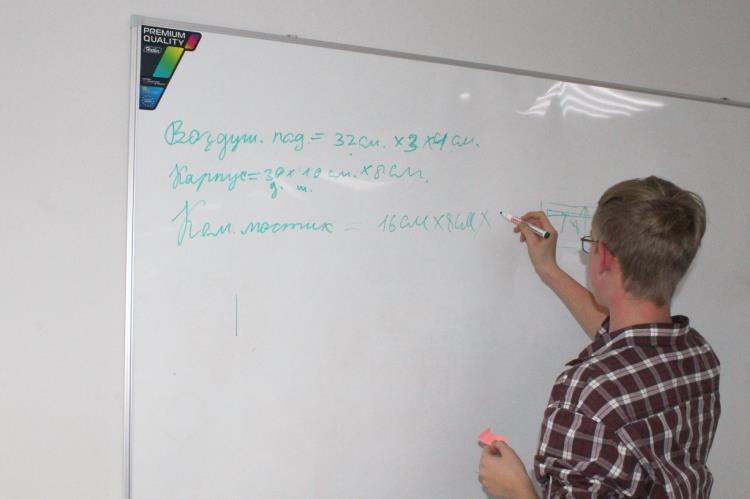 PREMIUM
QUALITY
Воздуш. пад. = 32см. х3 х4см.
Карпус=30х10см.х8см.
д. ш.
Кам. мостик = 16см х8см х